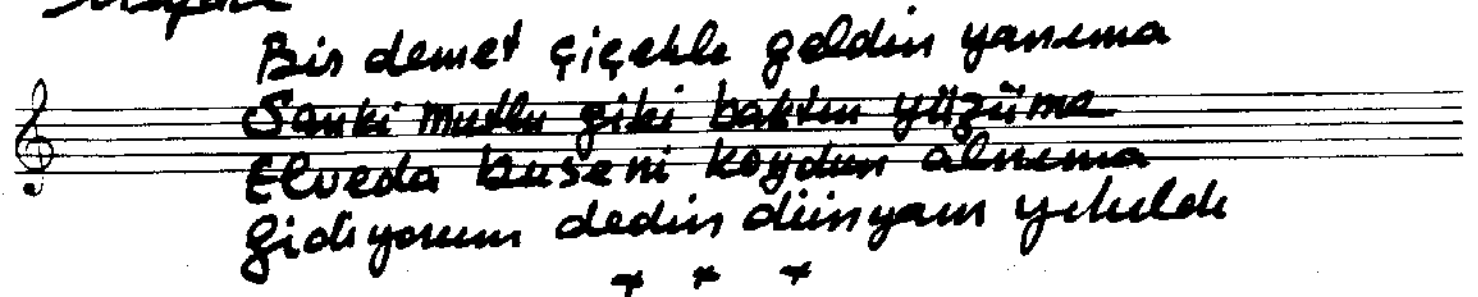 Bir demet çiçekle geldin yanıma
Sanki mutlu gibi baktın yüzüme
Elveda buseni koydun alnıma
Gidiyorum dedin dünyam yıkıldı